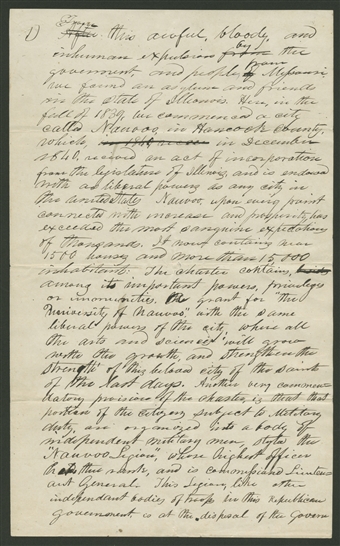 1)
After this awful, bloody, and
inhuman expulsion by the
government and people from Missouri
we found an asylum and friends
in the State of Illinois. Here, in the
fall of 1839, we commenced a city
called Nauvoo, in Hancock County,
which, in December
1840, received an act of incorporation
from the legislature of Illinois, and is endowed
with as liberal powers as any city in
the united States. Nauvoo, upon every point
connected with increase and prosperity, has
exceeded the most sanguine expectations
of thousands. It now contains near
1500 houses and more than 15,000
inhabitants. The charter contains,
among its important powers, privileges
or immunities, grant for "the
University of Nauvoo" with the same
liberal powers of the city, where all
the arts and sciences will grow
with the growth, and strengthen the
strength of this beloved city of the saints
of the last days. Another very commen-
datory provision of the charter is that that
portion of the citizens subject to Military
duty, are organized into a body of
independent military men, styled the
"Nauvoo Legion," whose highest officer
the rank, and is commissioned Lieuten-
ant General. This Legion, like other
independant bodies of troops in this republican
government is at the disposal of the Govern